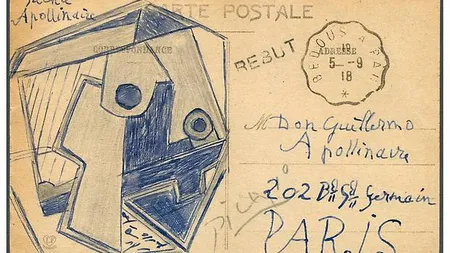 CARTE POSTALE
Apollinaire
CORRESPONDANCE
REBUT
BEDOUS A PAU
ADRESSE
18
5-9
18
*
M Don Guillermo
Apollinaire
202 Bd St Germain
PARIS
PICASSO